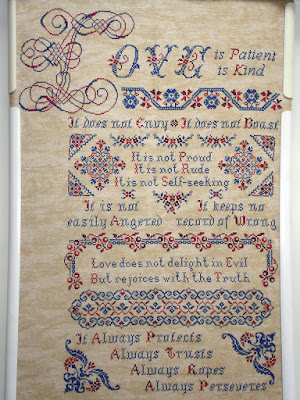 Love is Patient
is Kind
It does not Envy It does not Boast
It is not Proud
It is not Rude
It is not Self-seeking
It is not It keeps no
easily Angered record of Wrong
Love does not delight in Evil
But rejoices with the Truth
It Always Protects
Always Trusts
Always Hopes
Always Perseveres